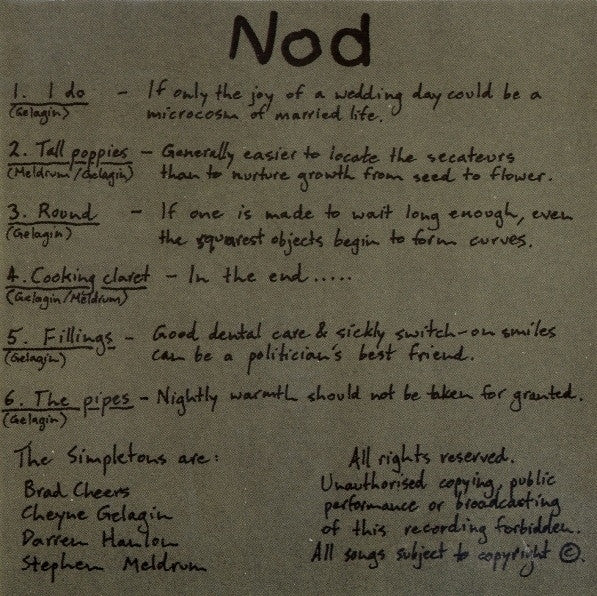 Nod
1. I do - If only the joy of a wedding day could be a
(Gelagin) microcosm of married life.
2. Tall poppies - Generally easier to locate the secateurs
(Meldrum/Gelagin) than to nurture growth from seed to flower.
3. Round - If one is made to wait long enough, even
(Gelagin) the squarest objects begin to form curves.
4. Cooking claret - In the end.....
(Gelagin/Meldrum)
5. Fillings - Good dental care & sickly switch-on smiles
(Gelagin) can be a politician's best friend.
6. The pipes - Nightly warmth should not be taken for granted.
(Gelagin)
The Simpletons are:
Brad Cheers
Cheyne Gelagin
Darren Hanlon
Stephen Meldrum
All rights reserved.
Unauthorised copying, public
performance or broadcasting
of this recording forbidden.
All songs subject to copyright ©.